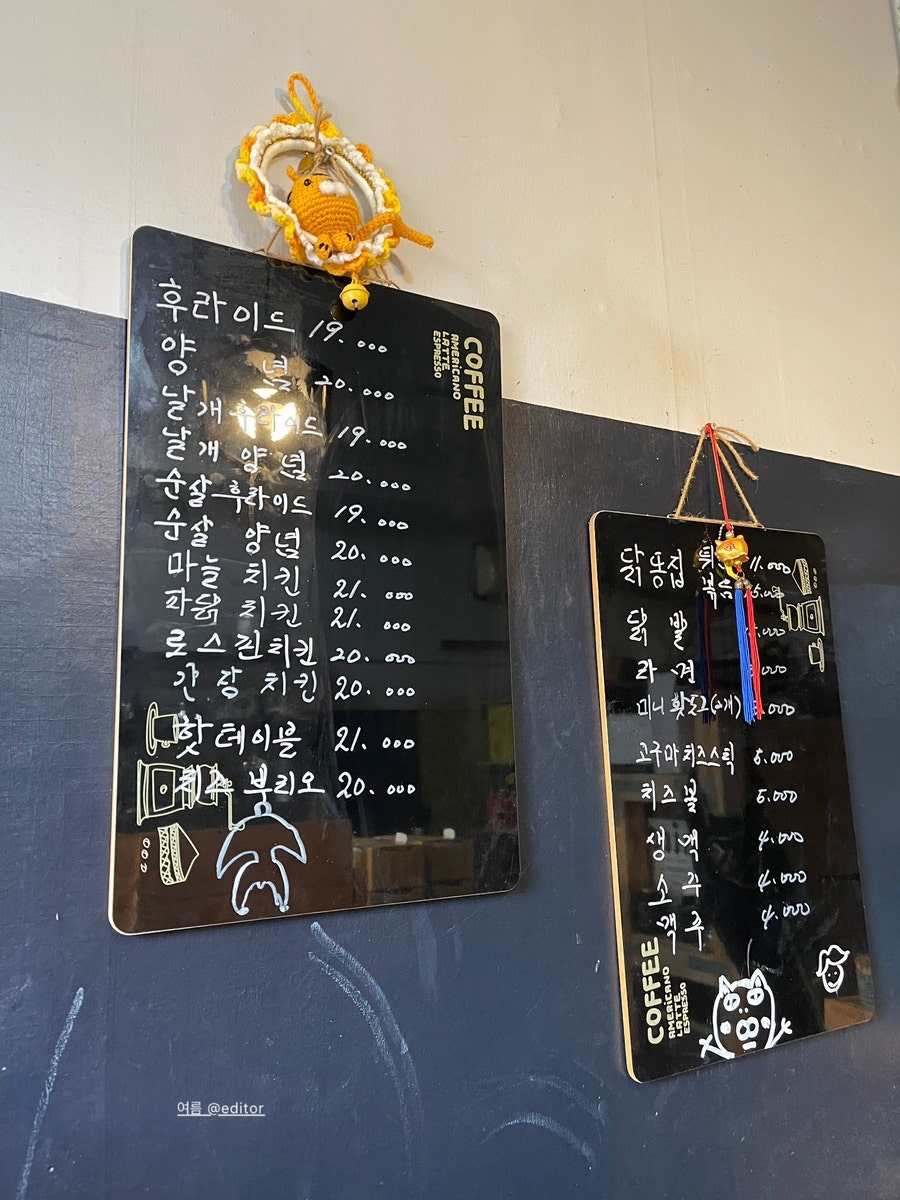 후라이드 19.000
양 념 20.000
날개 후라이드 19.000
날개 양념 20.000
순살 후라이드 19.000
순살 양념 20.000
마늘 치킨 21.000
파닭 치킨 21.000
로스린치킨 20.000
간장 치킨 20.000
핫테이블 21.000
치즈 부리오 20.000
COFFEE
AMERICANO
LATTE
ESPRESSO
닭똥집 11.000
닭 발
라면
미니 핫도그(2개)
고구마치즈스틱 5.000
치즈볼 5.000
생맥 4.000
소주 4.000
맥주 4.000
COFFEE
AMERICANO
LATTE
ESPRESSO
여름 @editor